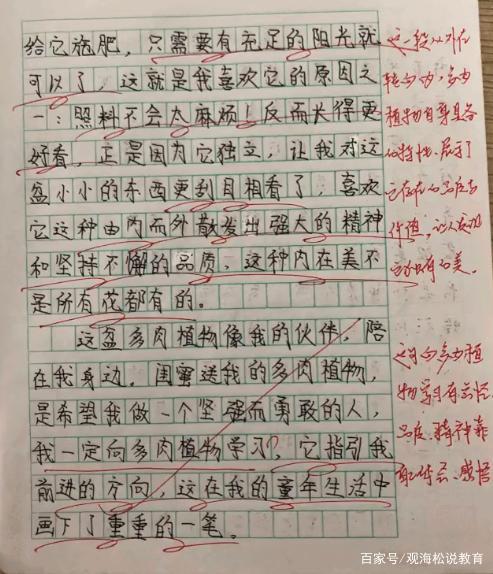 给它施肥，只需要有充足的阳光就
可以了，这就是我喜欢它的原因之
一：照料不会太麻烦！反而长得更
好看，正是因为它独立，让我对这
盆小小的东西更刮目相看了，喜欢
它这种由内而外散发出强大的精神
和坚持不懈的品质，这种内在美不
是所有花都有的。
这盆多肉植物像我的伙伴，陪
在我身边，闺蜜送我的多肉植物，
是希望我做一个坚强而勇敢的人，
我一定向多肉植物学习，它指引我
前进的方向，这在我的童年生活中
画下了重重的一笔。
这一段从外在
转向内，多肉
植物自身具备
的特性，展示了
它存在的
价值，
百家号/观海松说教育